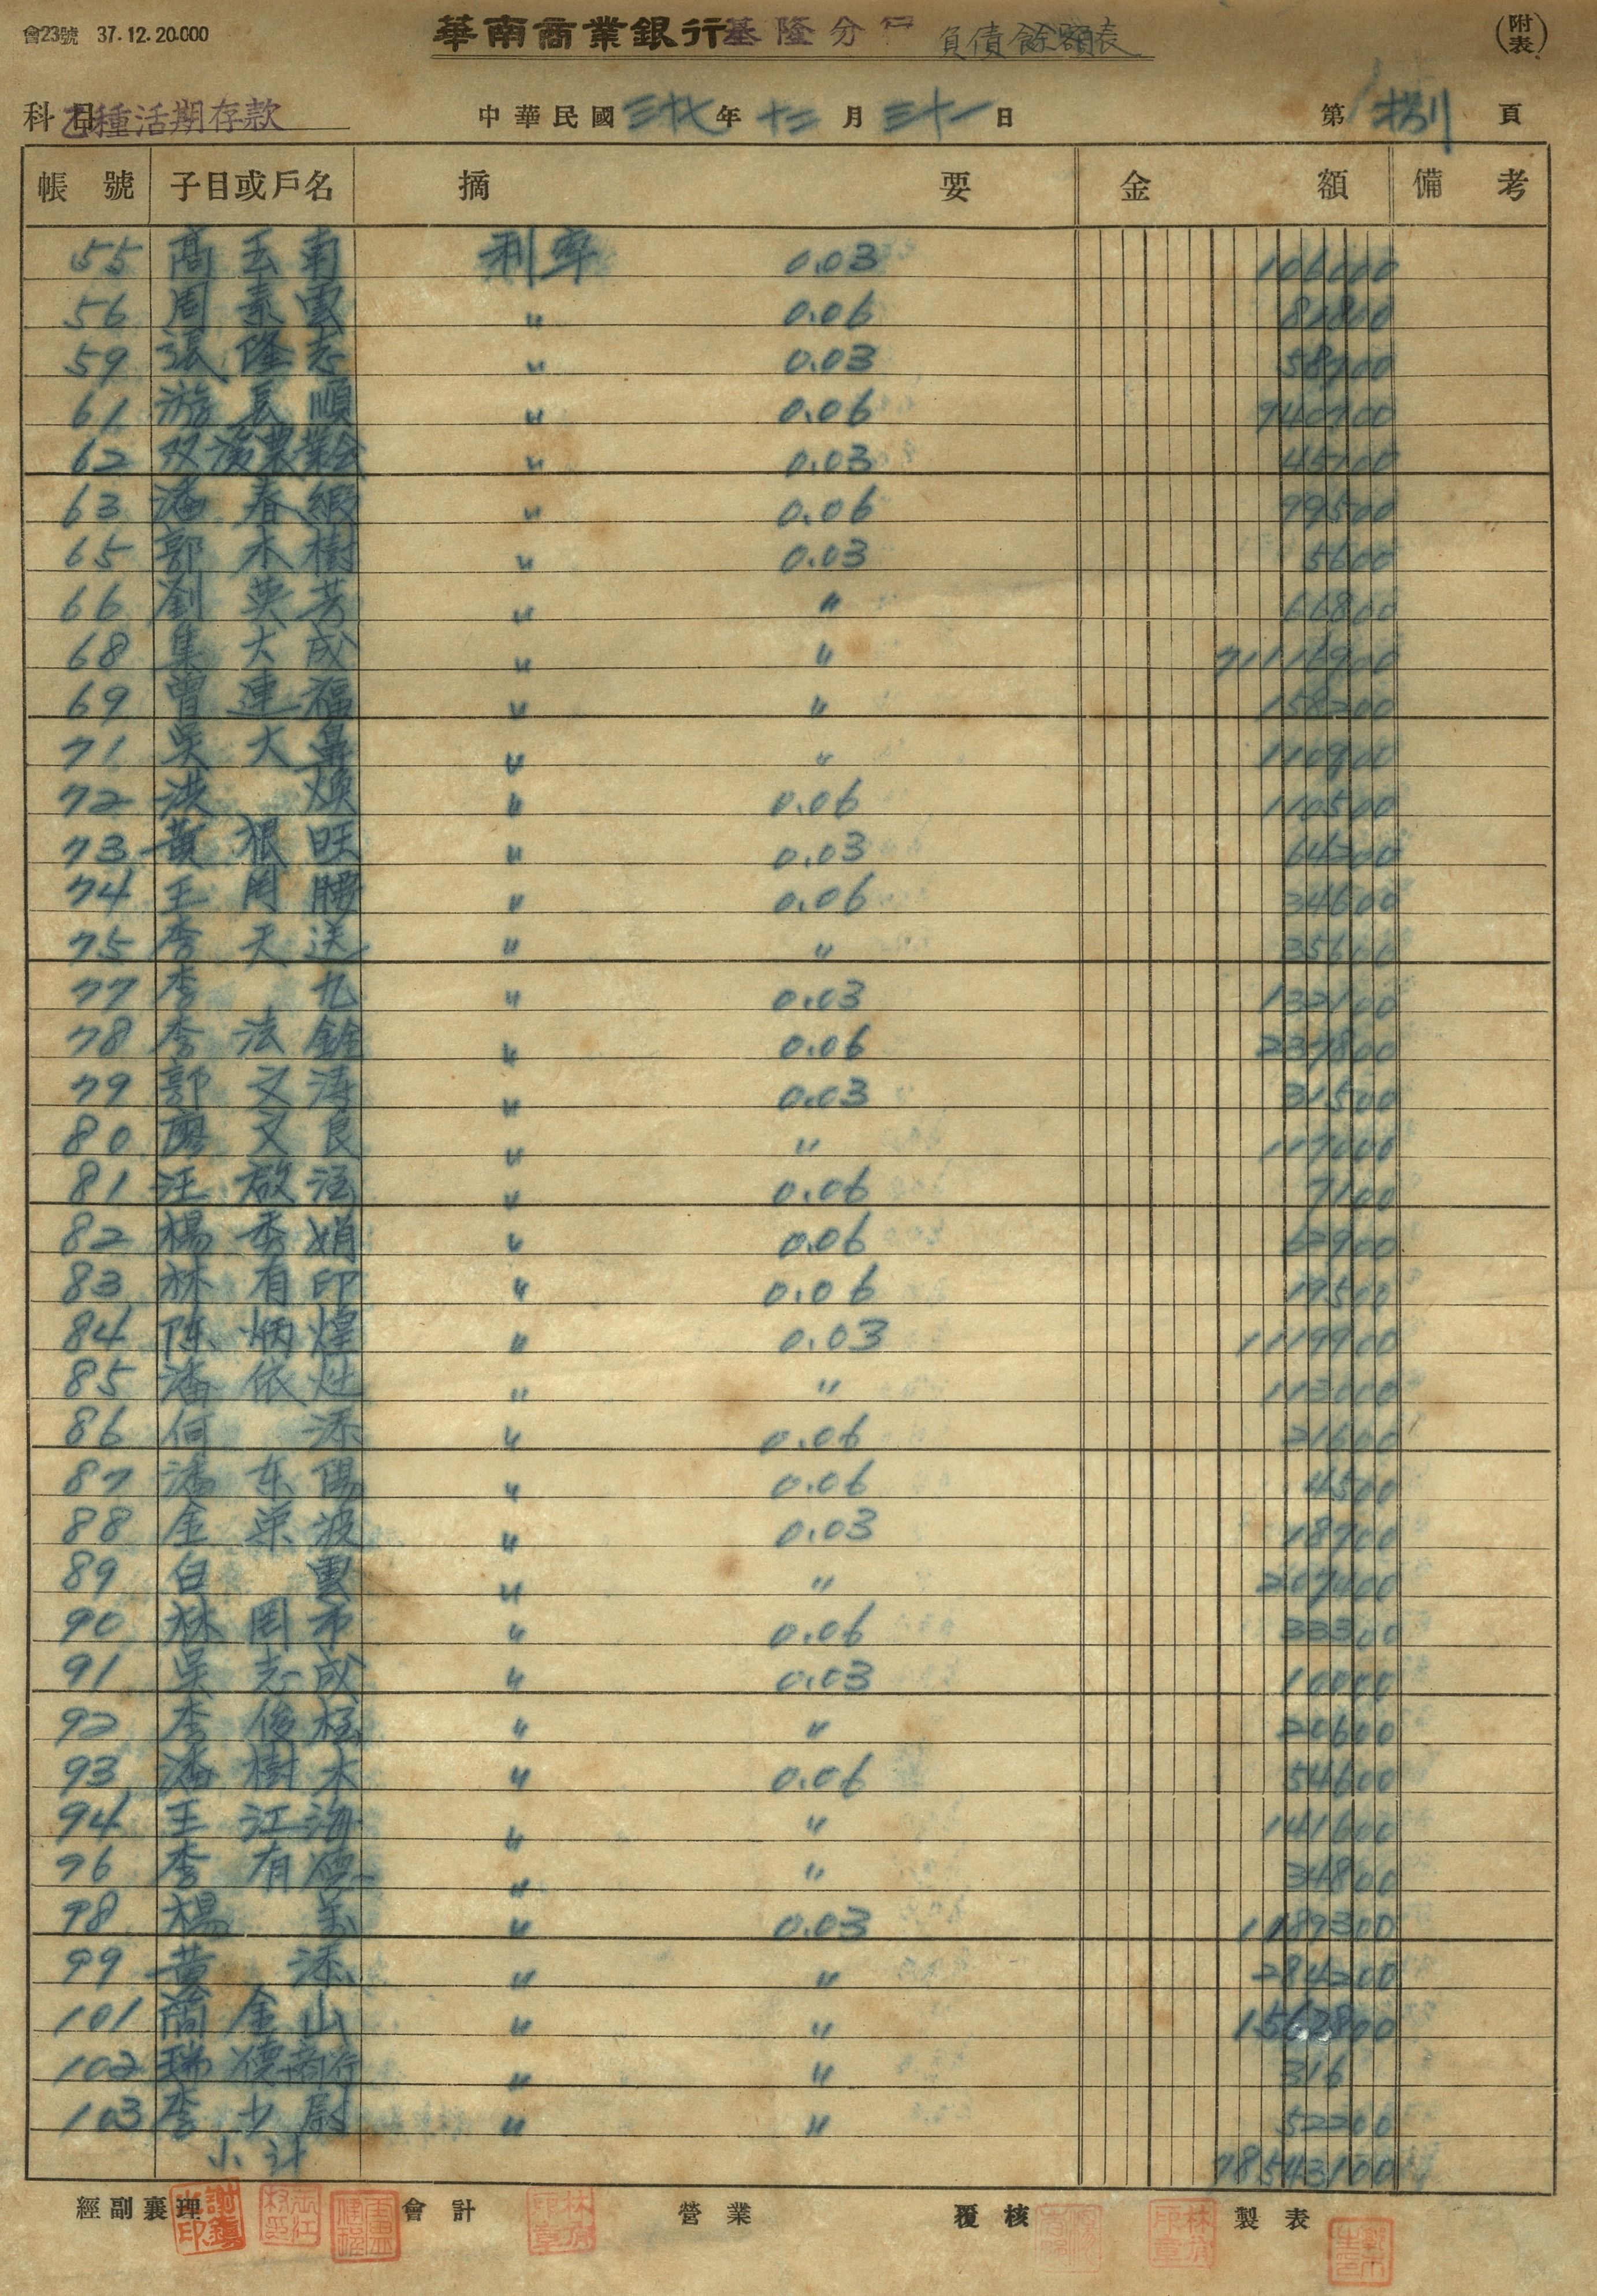 會23號 37.12.20.000
華南商業銀行基隆分行 負債餘額表
(附表)
科目 乙種活期存款 中華民國三十七年十二月三十一日 第捌頁
帳號 子目或戶名 摘要 金額 備考
55 高玉南 利率 0.03 106000
56 周素雲 〃 0.06 82800
59 張隆志 〃 0.03 58700
61 游長順 〃 0.06 740700
62 双溪農業会 〃 0.03 45700
63 潘春緞 〃 0.06 99500
65 郭木樹 〃 0.03 5600
66 劉英芳 〃 〃 66800
68 集大成 〃 〃 71116900
69 曾連福 〃 〃 158200
71 吳大鼻 〃 〃 110900
72 洪煥 〃 0.06 110500
73 黃根旺 〃 0.03 64200
74 王岡腰 〃 0.06 34600
75 李天送 〃 〃 35600
77 李九 〃 0.03 132100
78 李法銓 〃 0.06 237800
79 郭文濤 〃 0.03 31500
80 廖文良 〃 〃 117000
81 汪啟泓 〃 0.06 7100
82 楊秀娟 〃 0.06 62900
83 林有印 〃 0.06 19500
84 陈炳煌 〃 0.03 1119900
85 潘依灶 〃 〃 113000
86 何添 〃 0.06 21600
87 潘东陽 〃 0.06 4500
88 金栄波 〃 0.03 18700
89 白雲 〃 〃 207400
90 林罔市 〃 0.06 33300
91 吳志成 〃 0.03 10000
92 李俊極 〃 〃 20600
93 潘樹木 〃 0.06 54600
94 王江海 〃 〃 141600
96 李有德 〃 〃 34800
98 楊 〃 0.03 1189300
99 黃添 〃 〃 284200
101 簡金山 〃 〃 1562800
102 瑞德商行 〃 〃 316
103 李少尉 〃 〃 52200
小計 78543100
經副襄理 會計 營業 覆核 製表